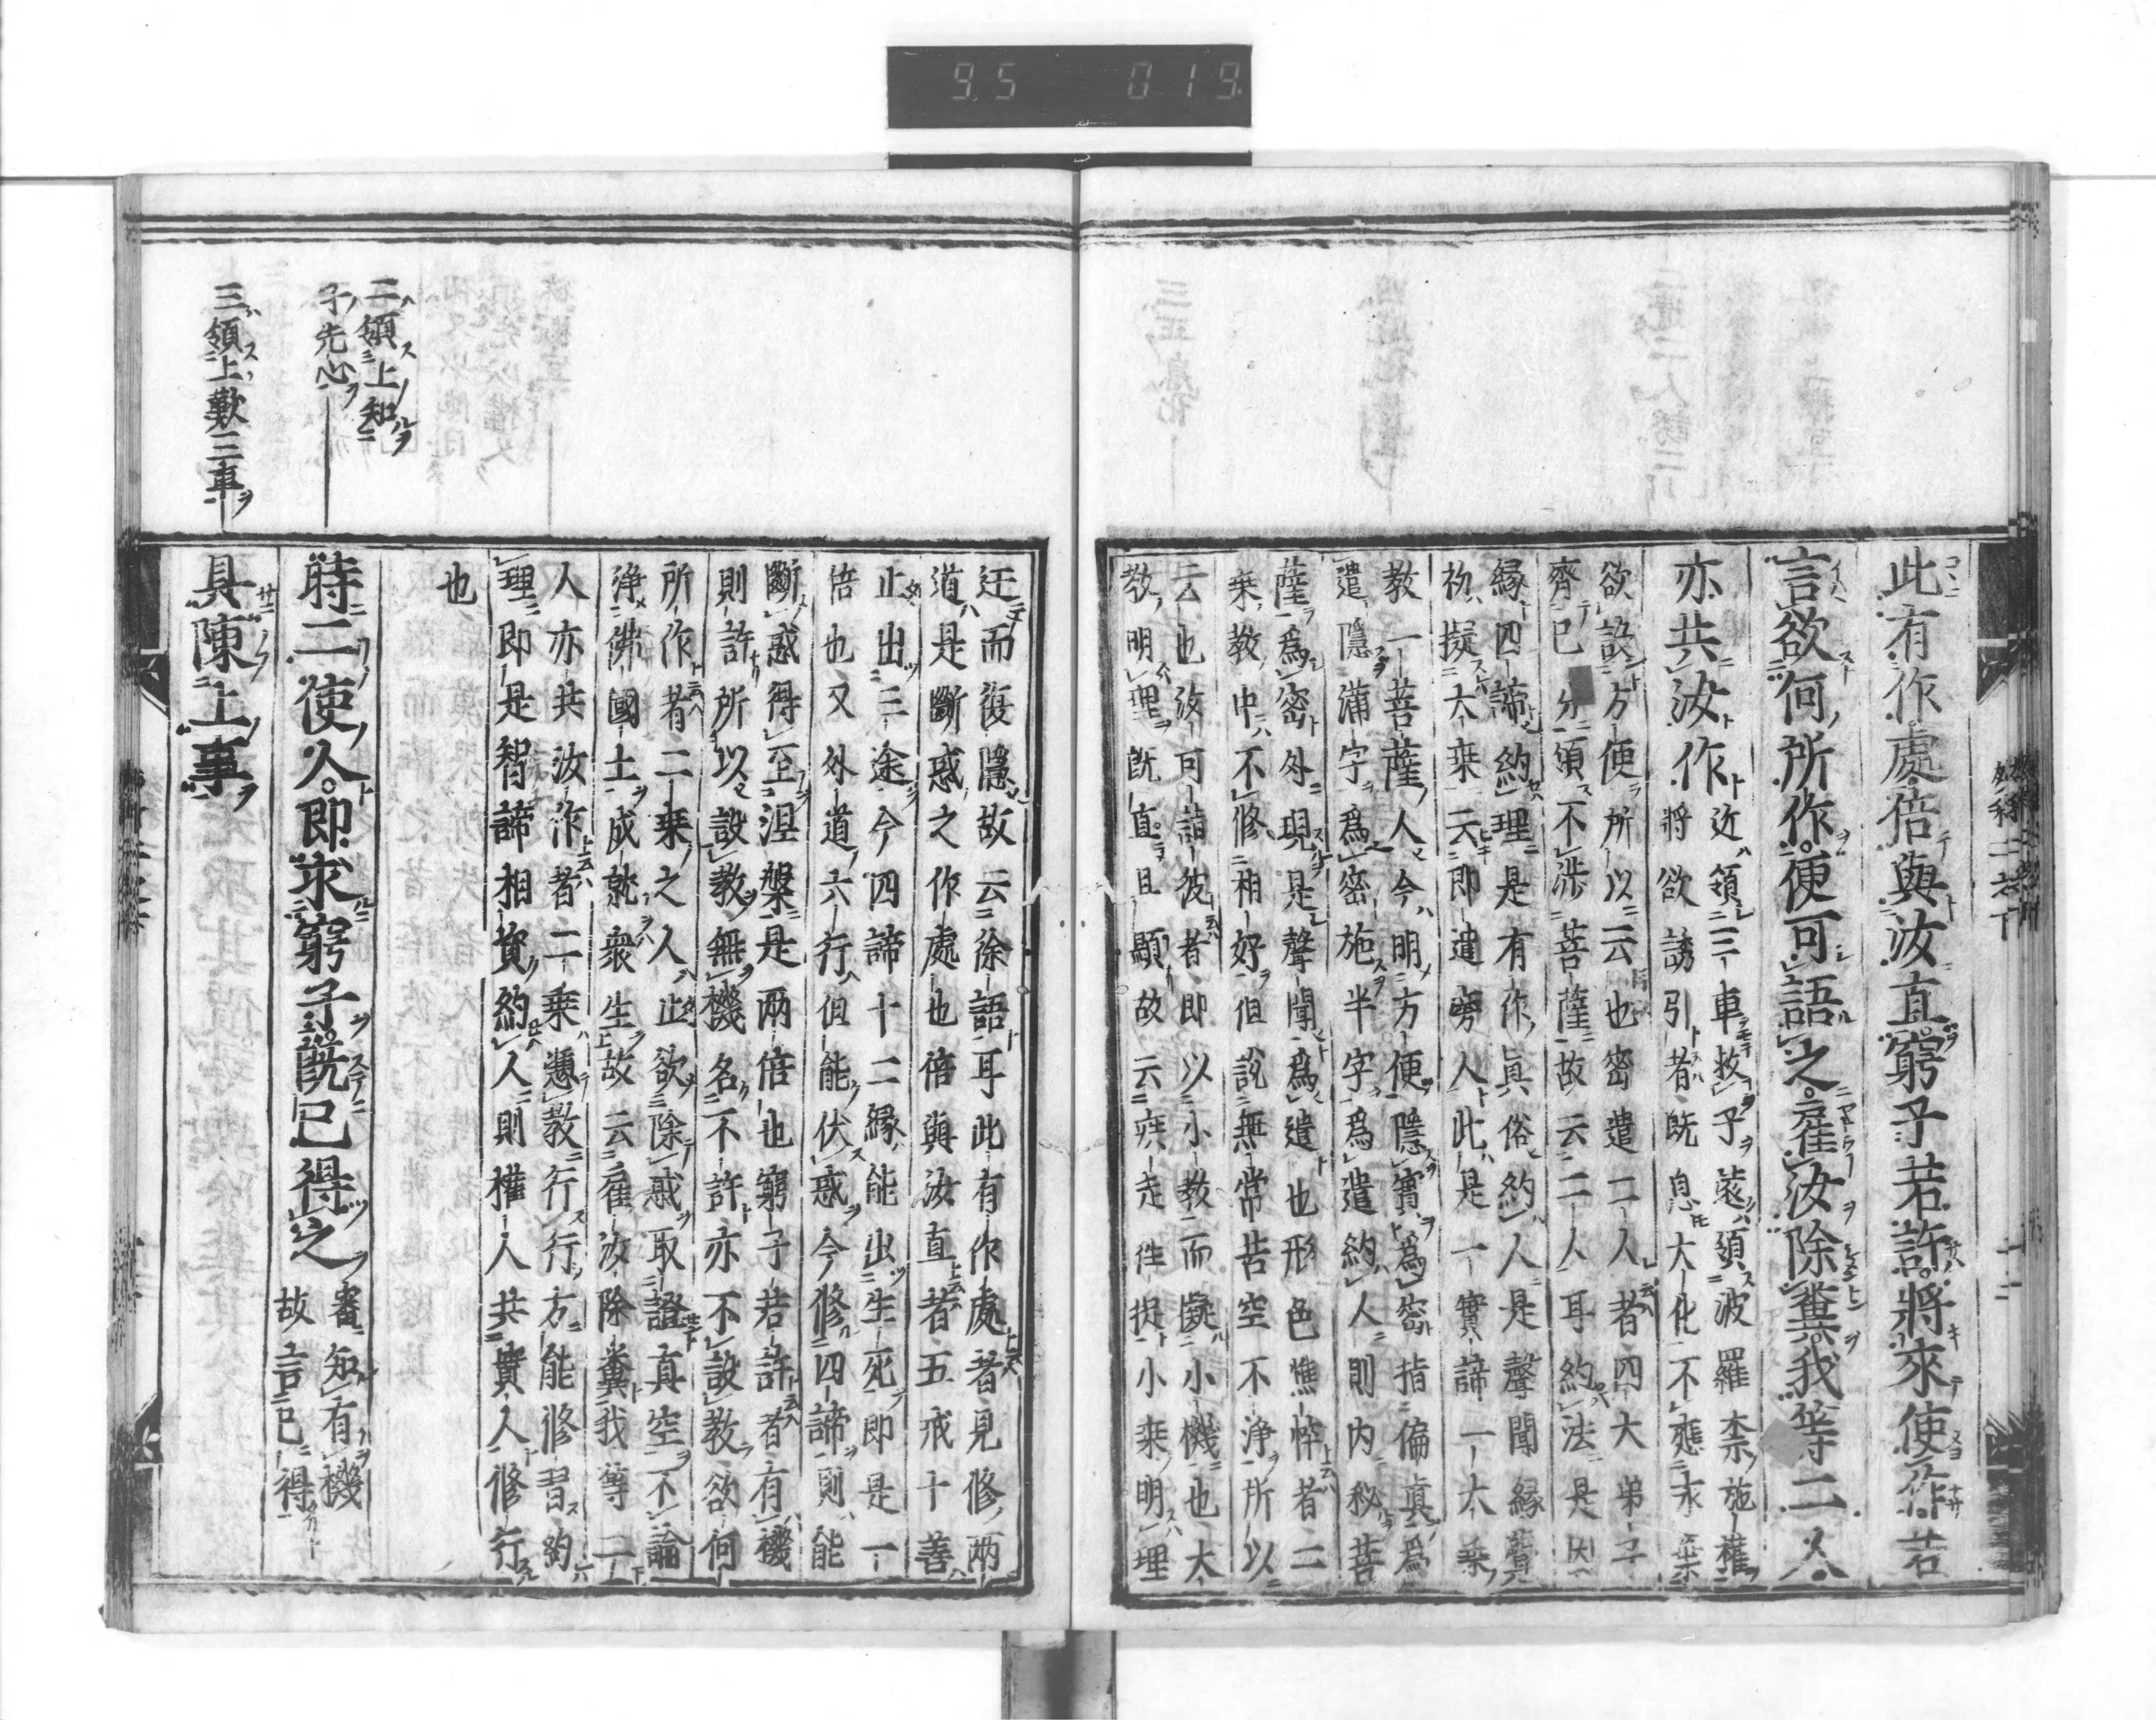 95 019
此有作處倍與汝直窮子若許將來使作若
言欲何所作便可語之雇汝除糞我等二人
亦共汝作
近領三車救子遠領波羅柰施權
將欲誘引者既息大化不應永棄
欲設方便所以云也密遣二人者四大弟子
齊已分領不涉菩薩故云二人耳約法是因
緣四諦約理是有作真俗約人是聲聞緣覺
初擬大乗云即遣旁人此是一實諦一大乗
教一菩薩人今明方便隱實為密指偏真為
遣隱滿字為密施半字為遣約人則内秘菩
薩為密外現是聲聞為遣也形色憔悴者二
乗教中不修相好但說無常苦空不浄所以
云也汝可詣彼者即以小教而擬小機也大
教明理既直且顯故云疾走往捉小乗明理
迂而復隱故云徐語耳此有作處者見修兩
道是斷惑之作處也倍與汝直者五戒十善
止出三途今四諦十二緣能出生死即是一
倍也又外道六行但能伏惑今修四諦則能
斷惑得至涅槃是兩倍也窮子若許者有機
則許所以設教無機名不許亦不設教欲何
所作者二乗之人止欲除惑取證真空不論
浄佛國土成就衆生故云雇汝除糞我等二
人亦共汝作者二乗憑教行行方能修習約
理即是智諦相資約人則權人共實人修行
也
二領上知
子先心
時二使人即求窮子既已得之
審知有機
故言已得
三領上歎三事
具陳上事